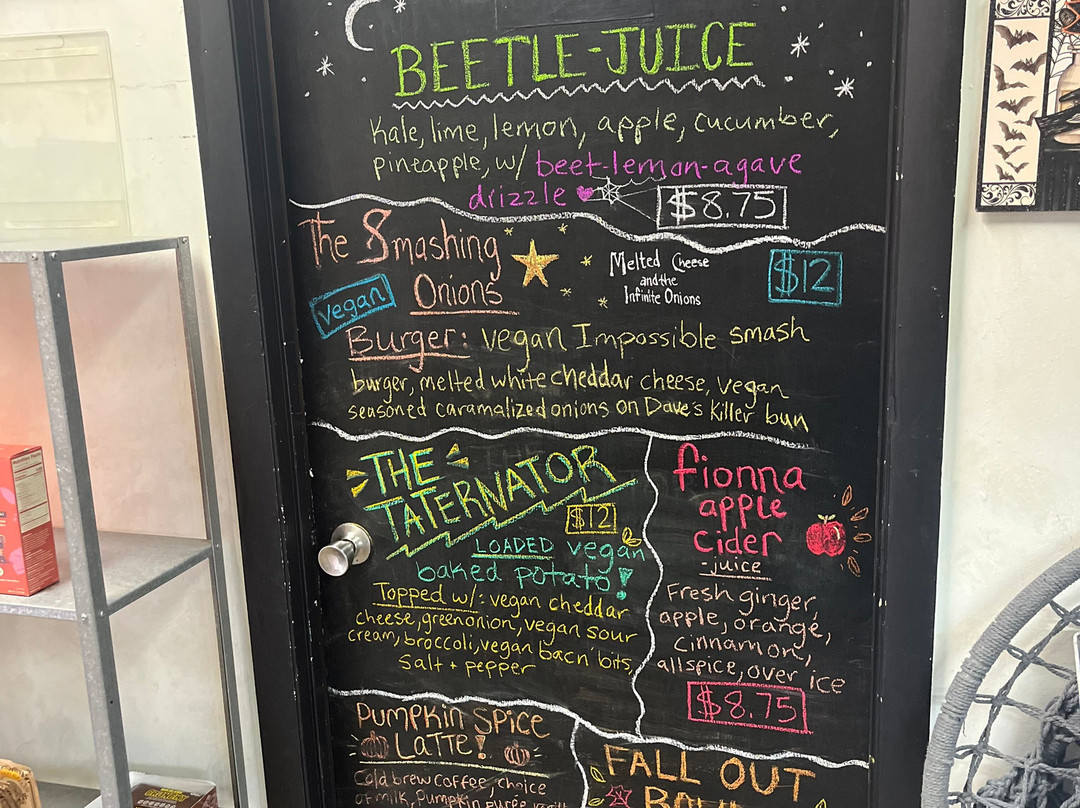 BEETLE-JUICE
Kale, lime, lemon, apple, cucumber,
pineapple, w/ beet-lemon-agave
drizzle
$8.75
The Smashing
Onions
vegan
Melted Cheese
and the
Infinite Onions
$12
Burger: vegan Impossible smash
burger, melted white cheddar cheese, vegan
seasoned caramalized onions on Dave's Killer bun
THE
TATERNATOR
$12
LOADED vegan
baked potato!
Topped w/: vegan cheddar
cheese, green onion, vegan sour
cream, broccoli, vegan bacn bits,
Salt + pepper
fionna
apple
cider
-juice
Fresh ginger,
apple, orange,
cinnamon,
allspice, over ice
$8.75
Pumpkin Spice
Latte!
Cold brew coffee, choice
of milk, Pumpkin puree,
FALL OUT